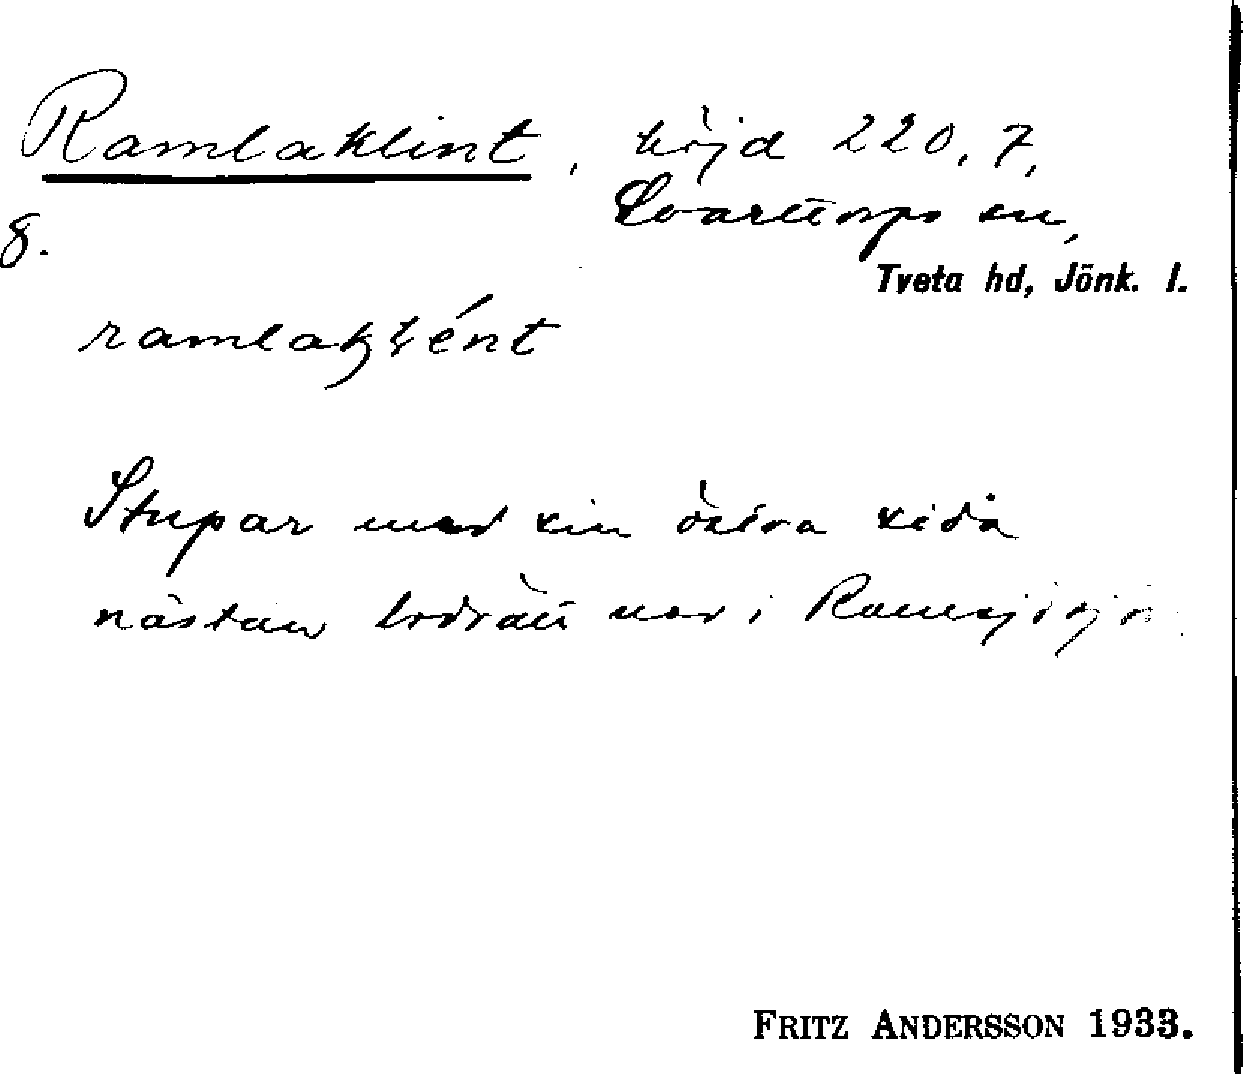 Ramlaklint, höjd 220,7,
Svarttorps sn,
8.
Tveta hd, Jönk. l.
Stupar med sin östra sida
nästan lodrätt ned i Ramsjö
FRITZ ANDERSSON 1933.